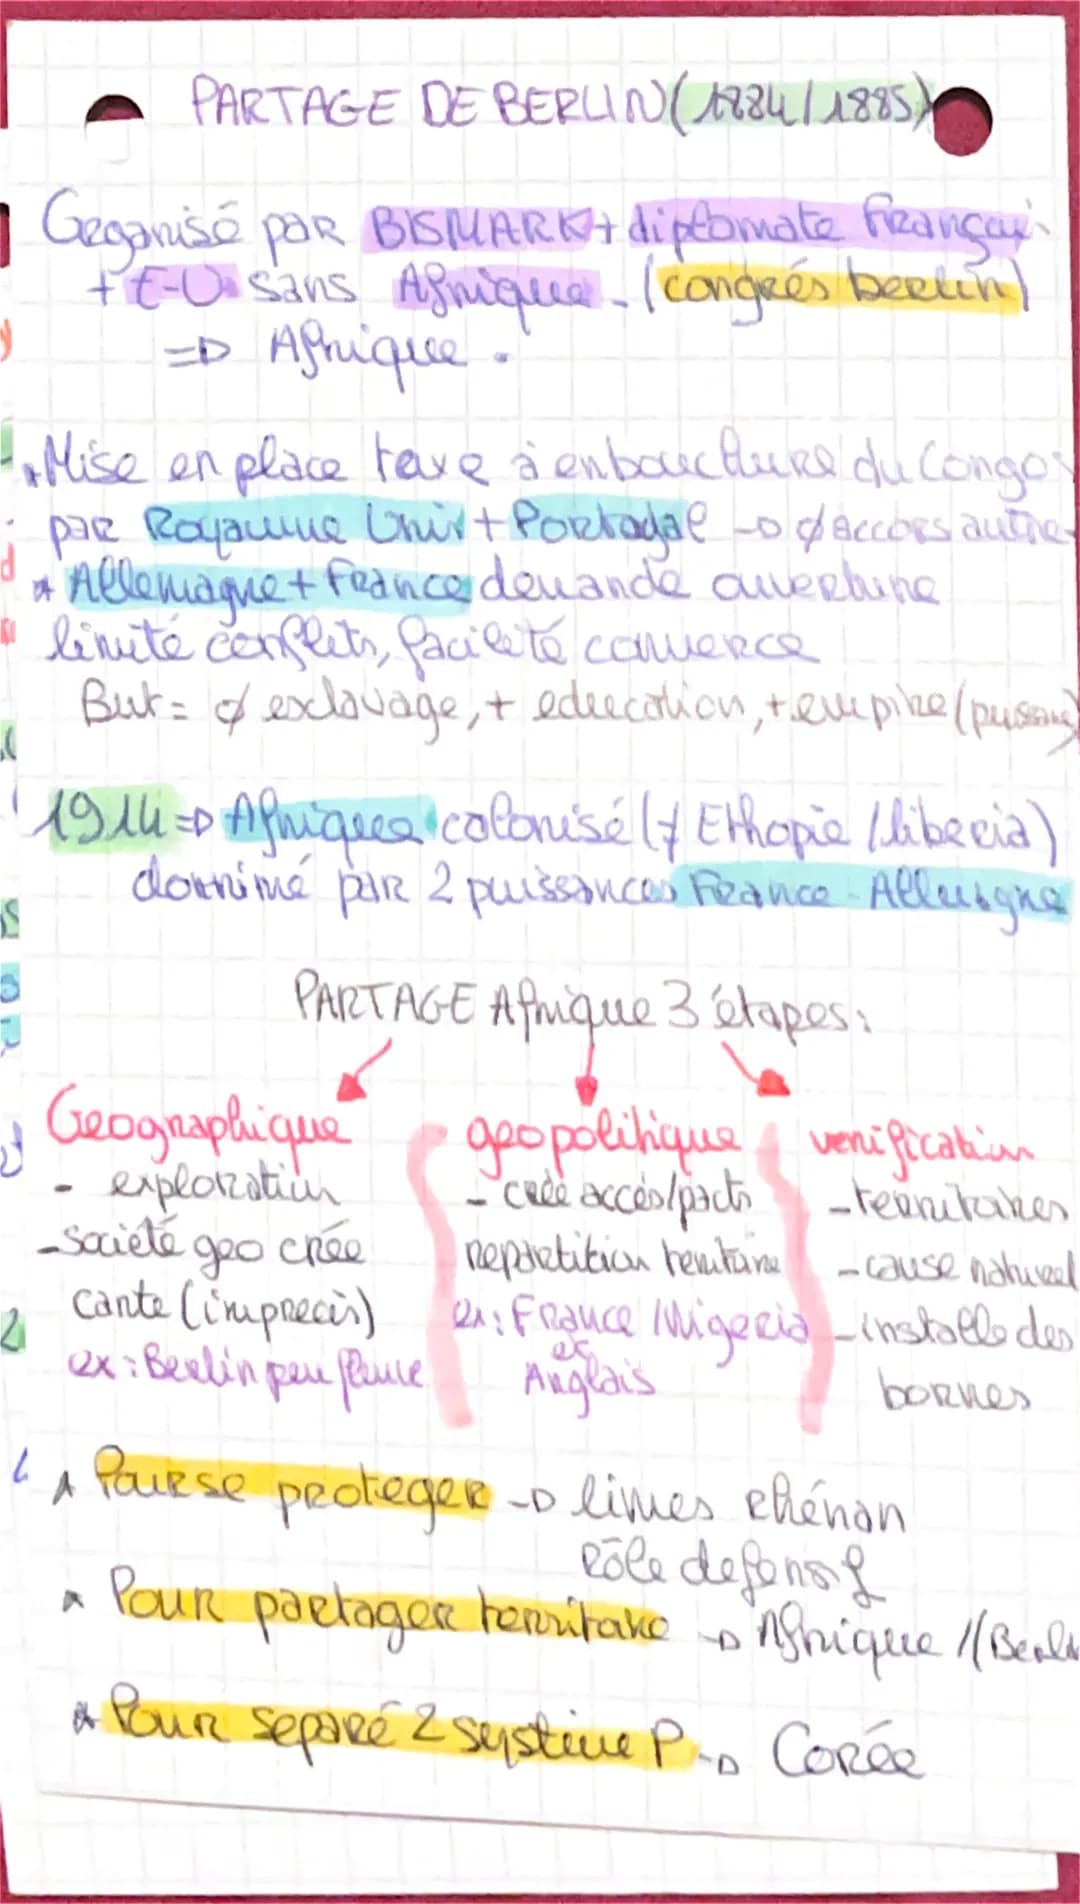 PARTAGE DE BERLIN (1884/1885)
Organisé par BISMARK + diplomate Français
+ E-U sans Afrique - (congrés berlin)
=> Afrique.
Mise en place taxe à enbouchure du Congo
par Royaume Unis + Portugal -> ∅ accées autre
* Allemagne + France demande ouverture
limité conflits, facilité commerce
But = ∅ exclavage, + education, + empire (puissance)
1914 => Afrique colonisé (≠ Ethopie / liberia)
dominé par 2 puissances France - Allemagne
PARTAGE Afrique 3 étapes:
Geographique geopolitique verification
- exploration
- société geo crée
carte (imprecis)
ex: Berlin peu fleuve
- crée accés/pacts
repartition territoire
ex: France / Nigeria
et
Anglais
- territoires
- cause naturel
- installe des
bornes
* Pour se proteger -> limes Rhénan
Rôle defensif
* Pour partager territoire -> Afrique // (Berlin
* Pour separé 2 système P -> Corée